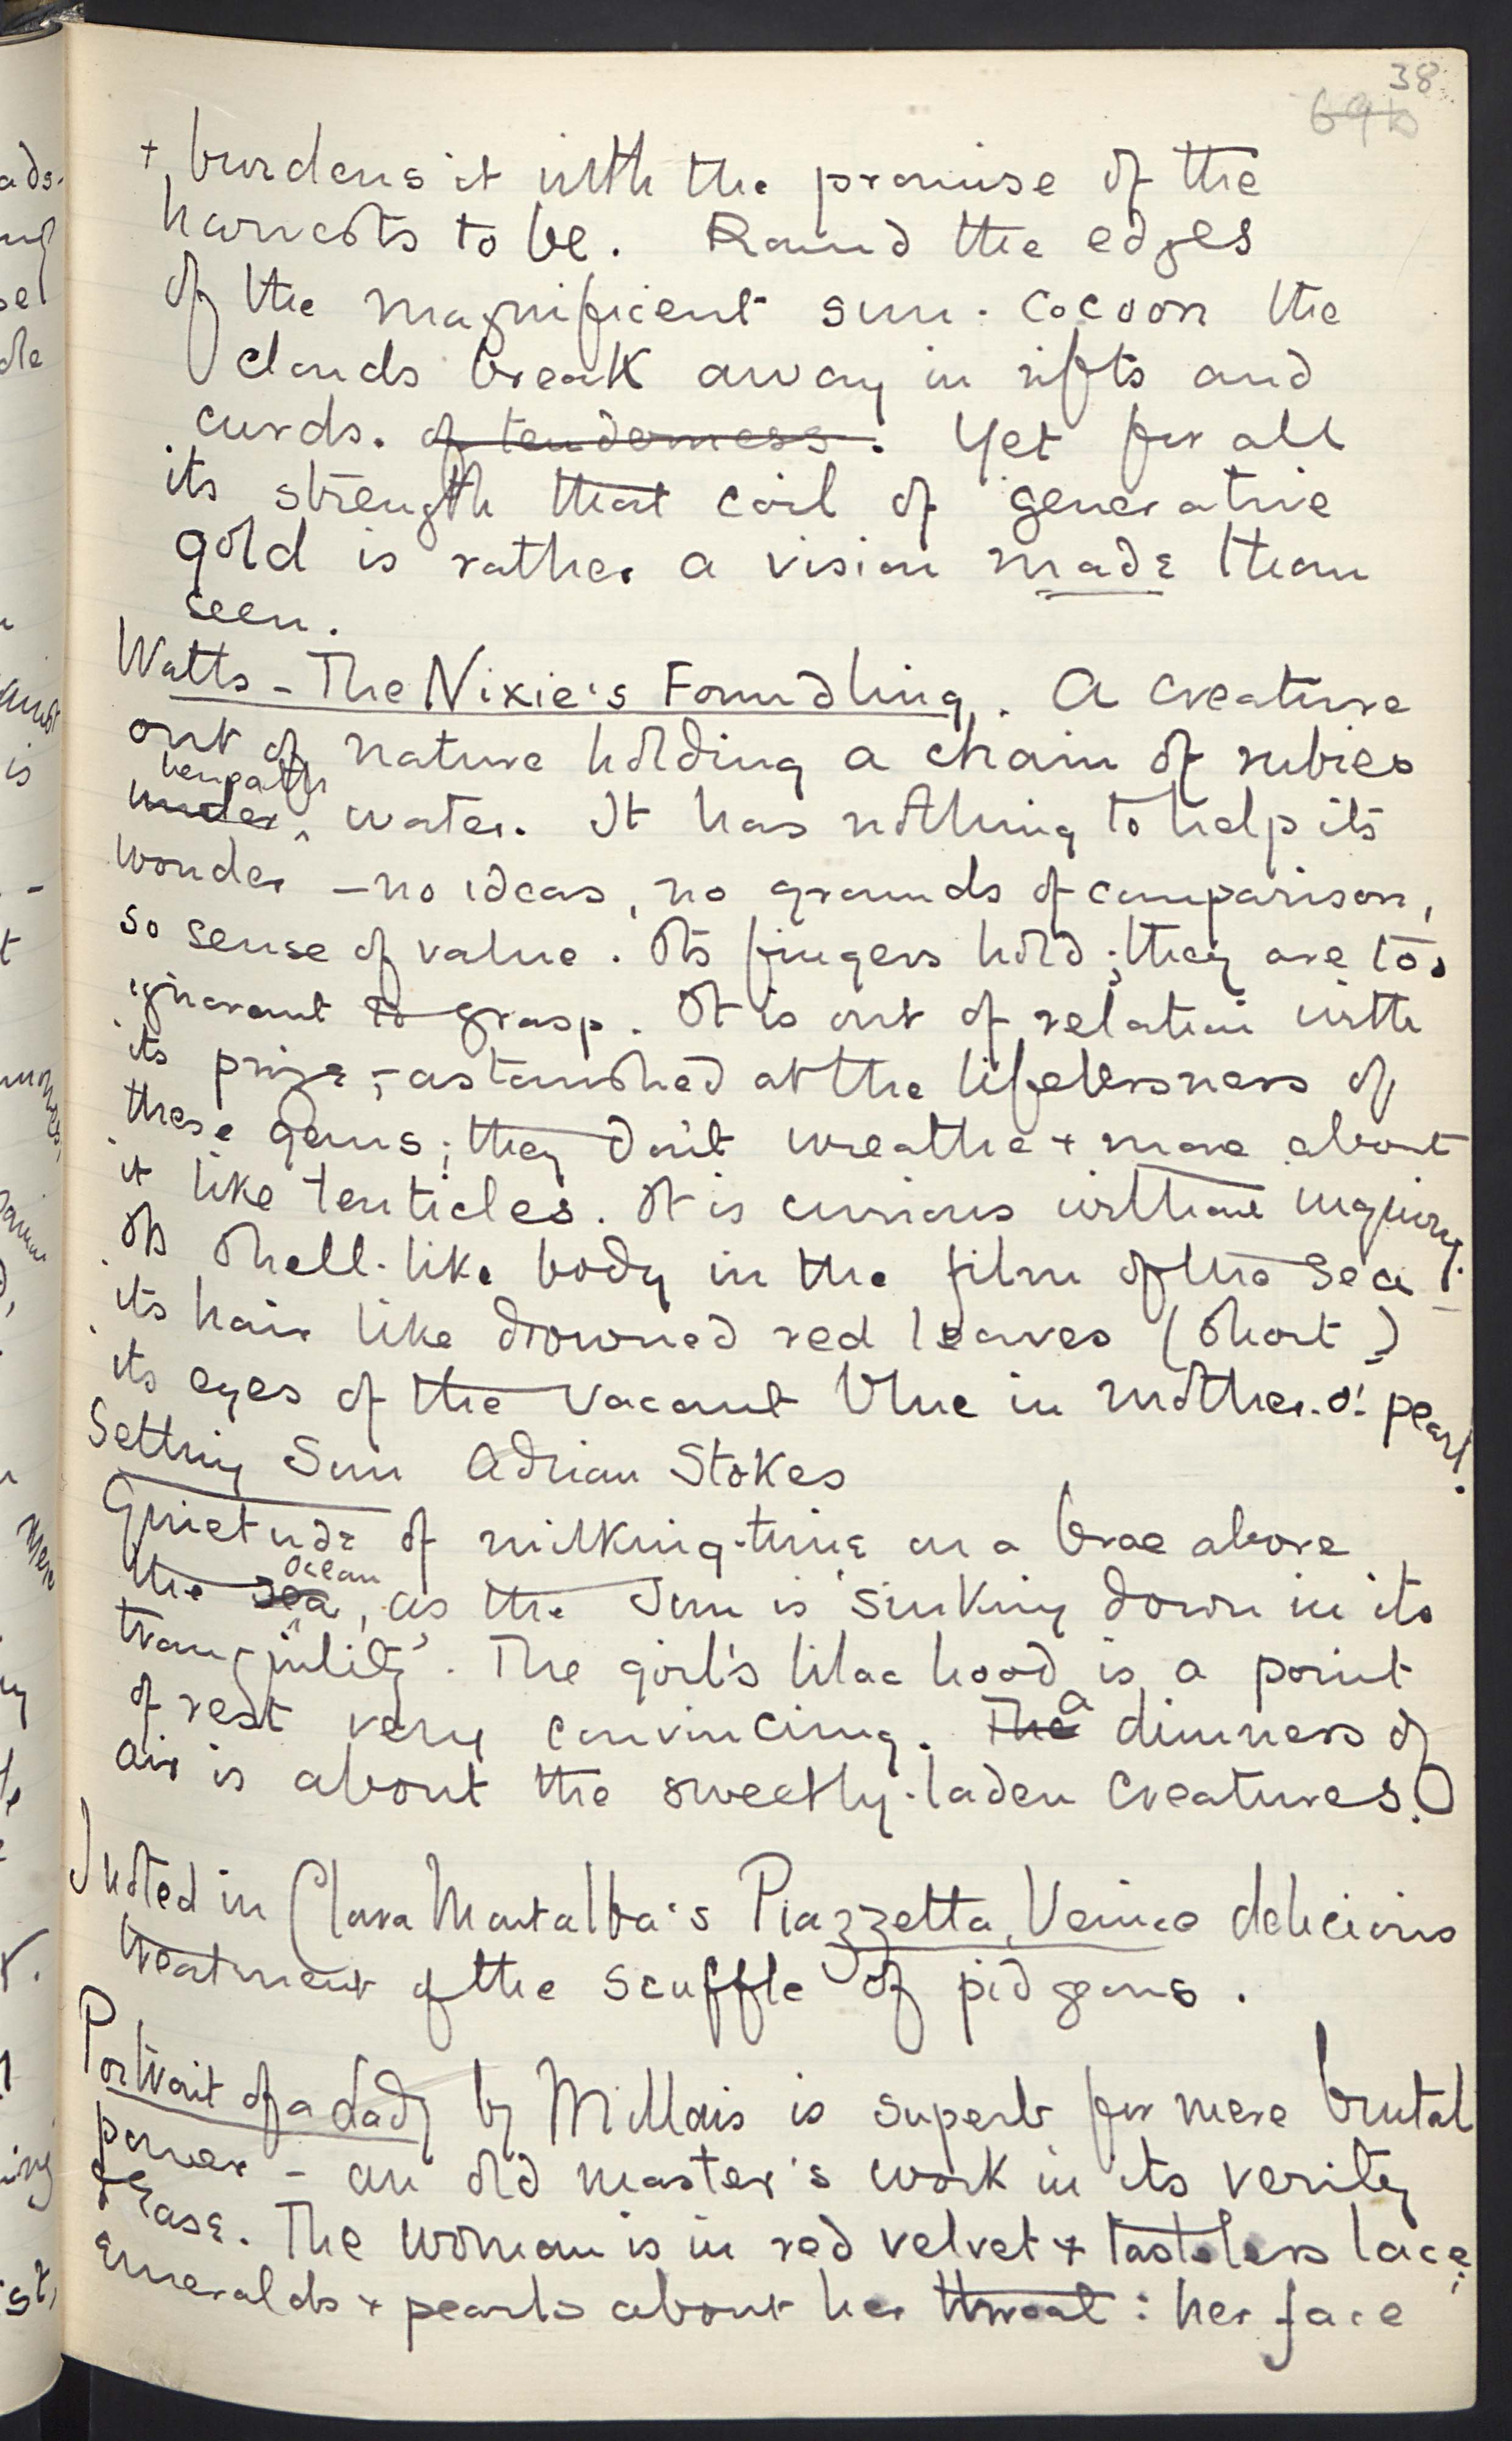 38
69b
+ burdens it with the promise of the
harvests to be. Round the edges
of the magnificent sun-cocoon the
clouds break away in rifts and
curds. of tenderness. Yet for all
its strength that coil of generative
gold is rather a vision made than
seen.
Watts - The Nixie's Foundling. A creature
out of nature holding a chain of rubies
under beneath water. It has nothing to help its
wonder - no ideas, no grounds of comparison,
so sense of value. Its fingers hold; they are too
ignorant to grasp. It is out of relation with
its prize; - astonished at the lifelessness of
these gems; they don't wreathe + move about
it like tenticles. It is curious without inquiry.
Its shell-like body in the film of the sea -
its hair like drowned red leaves (short)
its eyes of the vacant blue in mother-o'-pearl.
Setting Sun Adrian Stokes
Quietude of milking-time on a brae above
the sea ocean, as the sun is 'sinking down in its
tranquility'. The girl's lilac hood is a point
of rest very convincing. The a dimness of
air is about the sweetly-laden creatures.
I noted in Clara Montalba's Piazzetta, Venice delicious
treatment of the scuffle of pidgeons.
Portrait of a Lady by Millais is superb for mere brutal
power - an old master's work in its verity
& ease. The woman is in red velvet + tasteless lace;
emeralds + pearls about her throat: her face